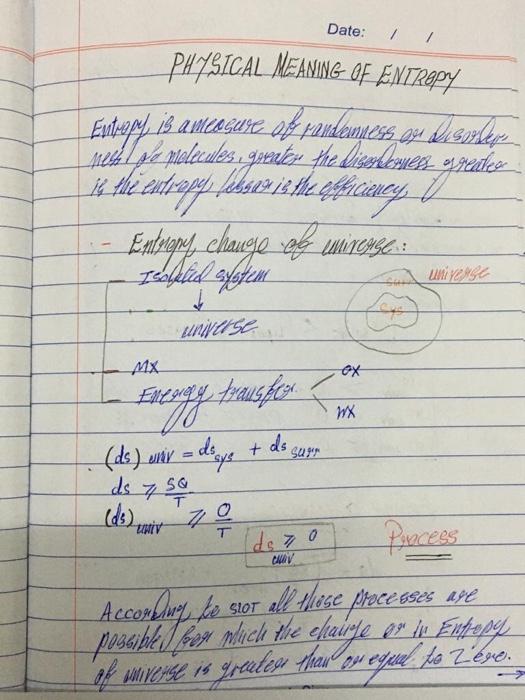 Date: / /
PHYSICAL MEANING OF ENTROPY
Entropy is a measure of randomness or disorder-
ness of molecules, greater the disorderness greater
is the entropy lesser is the efficiency
- Entropy change of universe:
Isolated system
surr universe
sys
↓
universe
MX
QX
Energy transfer
WX
(ds) univ = ds sys + ds surr
ds ⩾ SQ/T
(ds) univ ⩾ O/T
ds univ ⩾ 0 Process
According to SLOT all those processes are
possible, for which the change or in Entropy
of universe is greater than or equal to Zero. →